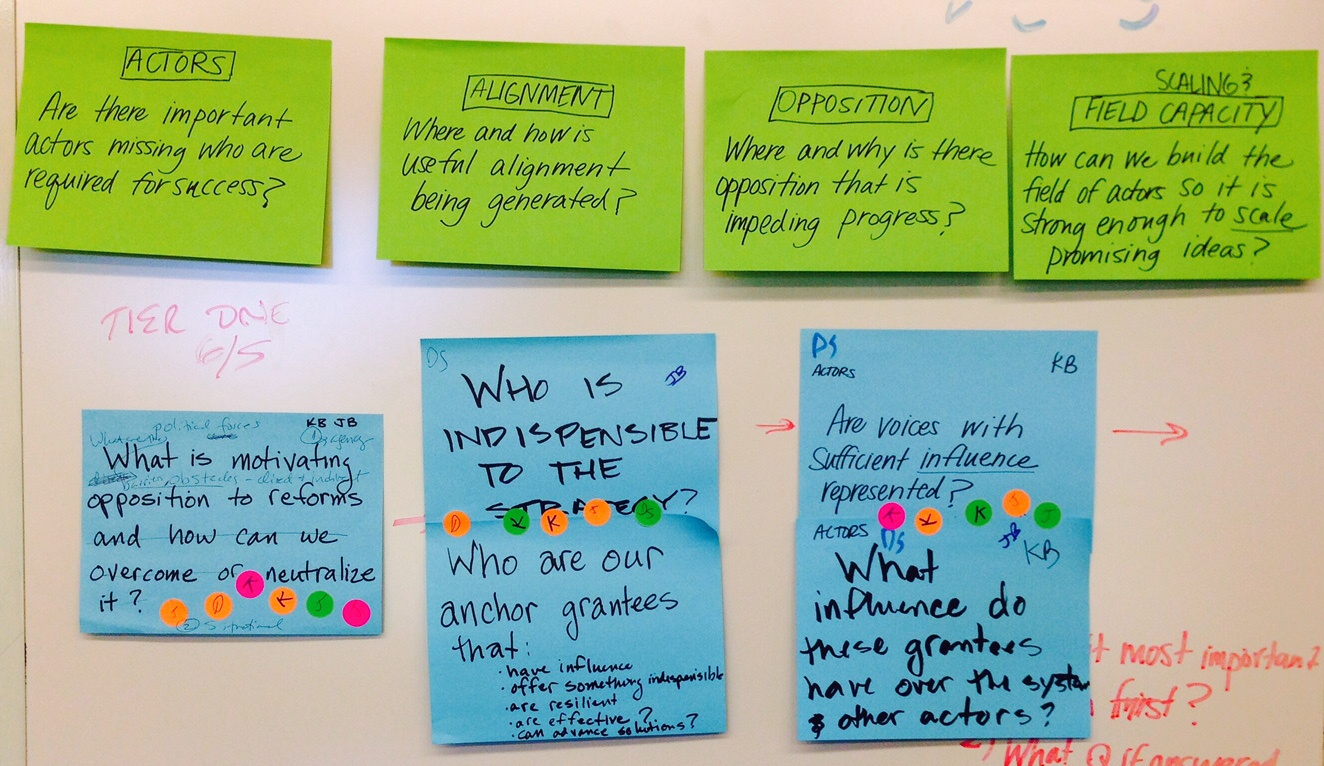 ACTORS
Are there important
actors missing who are
required for success?
ALIGNMENT
Where and how is
useful alignment
being generated?
OPPOSITION
Where and why is there
opposition that is
impeding progress?
SCALING &
FIELD CAPACITY
How can we build the
field of actors so it is
strong enough to scale
promising ideas?
TIER ONE
6/5
political forces
KB JB
What is motivating
obstacles - direct + indirect
opposition to reforms
and how can we
overcome or neutralize
it?
DS
JB
WHO IS
INDISPENSIBLE
TO THE
STRATEGY?
D K K J DS
Who are our
anchor grantees
that:
· have influence
· offer something indispensible
· are resilient
· are effective?
· can advance solutions?
DS
KB
ACTORS
Are voices with
sufficient influence
represented?
K K K J J
ACTORS DS
JB KB
What
influence do
these grantees
have over the system
& other actors?
it most important
first?
What Q if answered